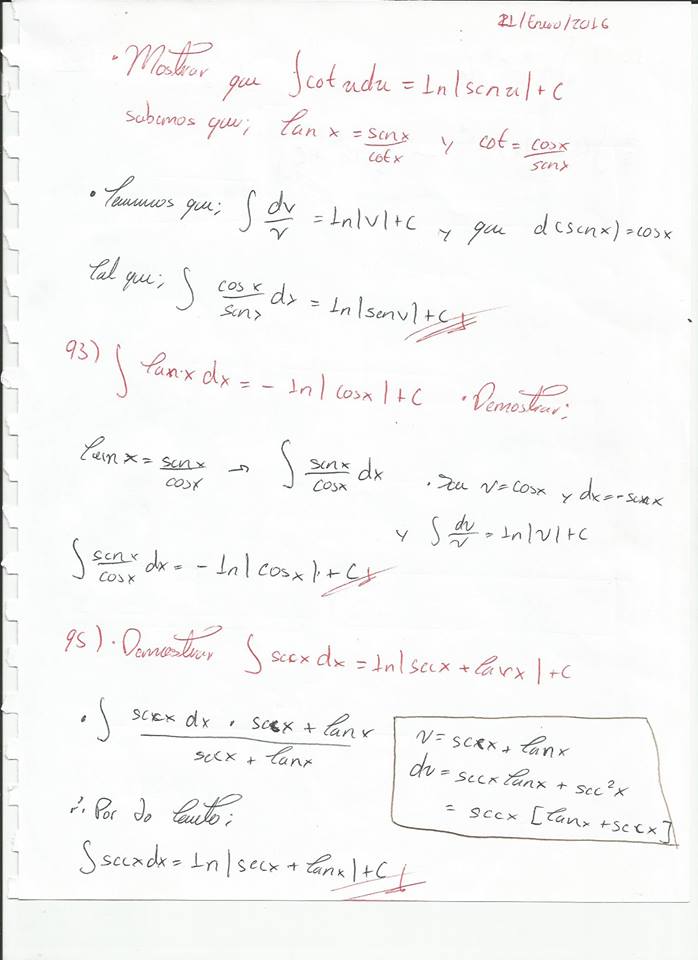 21/Enero/2016
• Mostrar que ∫cot u du = ln|sen u| + C
sabemos que; tan x = sen x/cot x y cot = cos x/sen x
• Tenemos que; ∫ dv/v = ln|v| + C y que d(sen x) = cos x
tal que; ∫ cos x/sen x dx = ln|sen v| + C
93) ∫ tan x dx = - ln|cos x| + C • Demostrar;
tan x = sen x/cos x → ∫ sen x/cos x dx • Sea v = cos x y dx = - sen x
y ∫ dv/v = ln|v| + C
∫ sen x/cos x dx = - ln|cos x| + C
95) • Demostrar ∫ sec x dx = ln|sec x + tan x| + C
• ∫ sec x dx • sec x + tan x / sec x + tan x
v = sec x + tan x
dv = sec x tan x + sec² x
= sec x [tan x + sec x]
∴ Por lo tanto;
∫ sec x dx = ln|sec x + tan x| + C